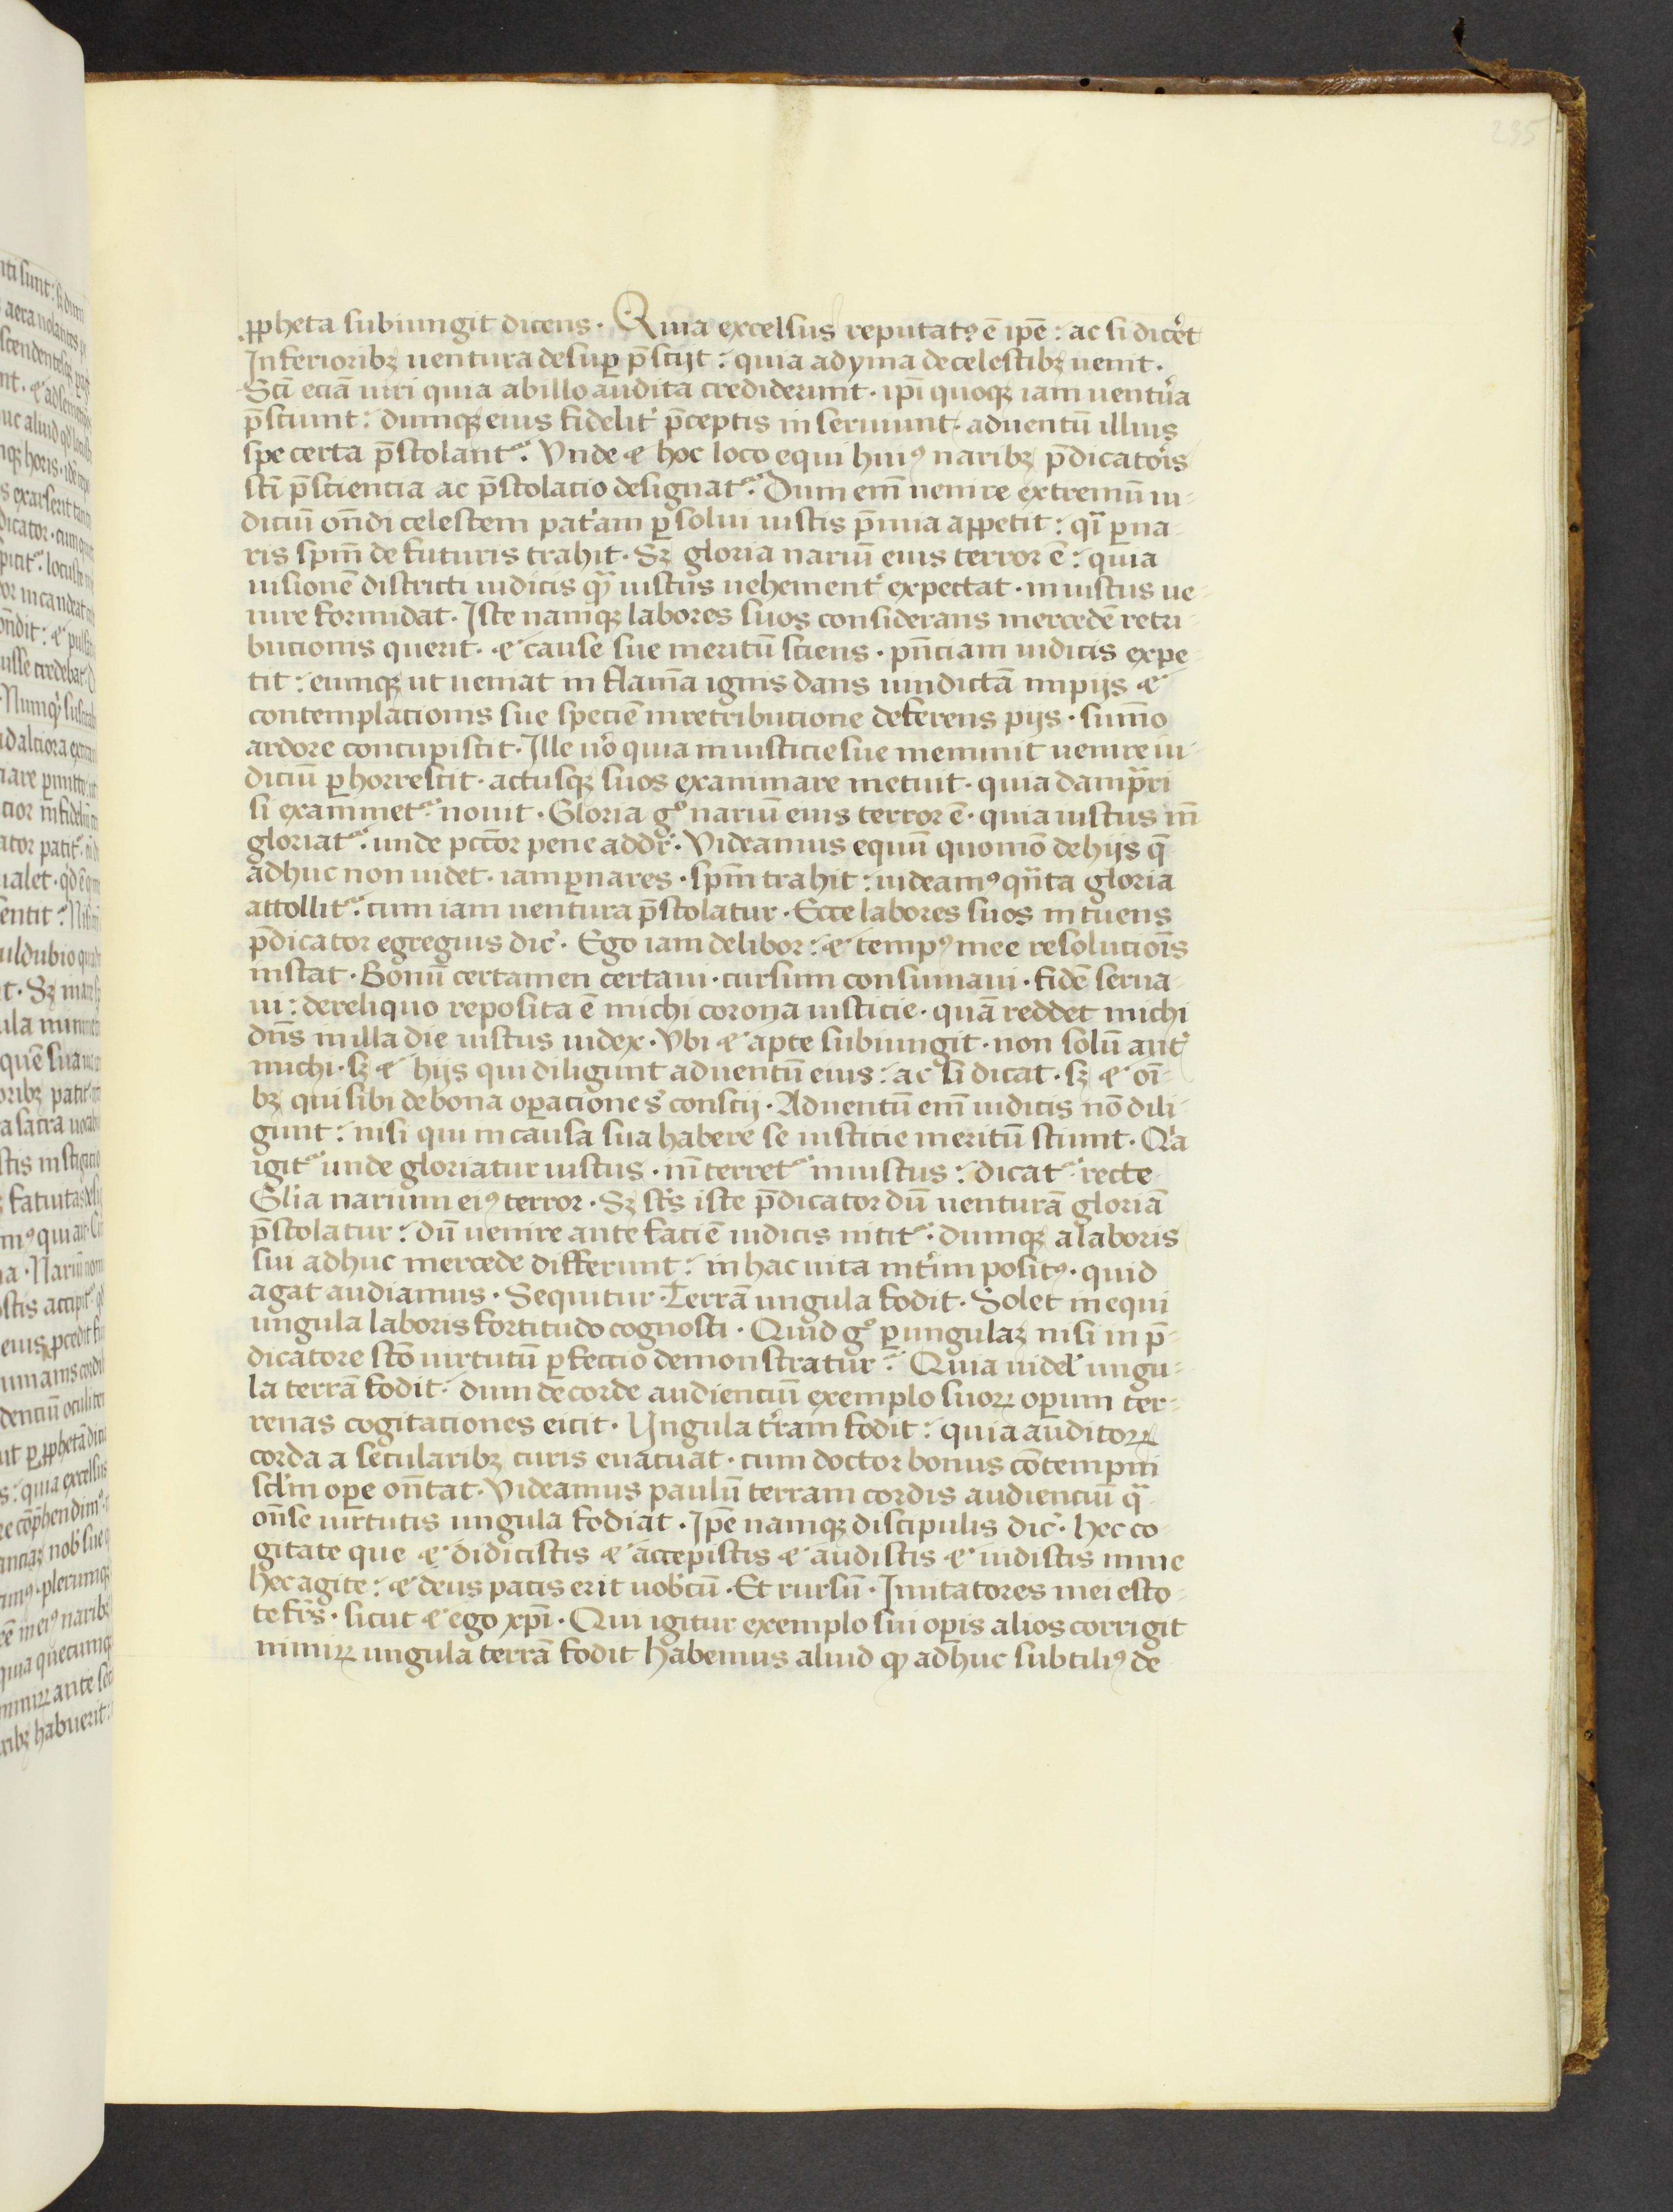 ꝓpheta subiungit dicens · Quia excelsus reputatꝰ ē ipē : ac si dicẽt
Inferioribꝫ uentura desuꝑ p̄scijt : quia ad yma de celestibꝫ uenit ·
Sc̄i eciā uiri quia ab illo audita crediderunt · ip̄i quoqꝫ iam uent᷑a
p̄sciunt : dumqꝫ eius fidelit᷑ p̄ceptis inseruiunt · aduentū illius
spe certa p̄stolant᷑ · Vnde ⁊ hoc loco equi huiꝰ naribꝫ p̄dicatoris
sc̄i p̄sciencia ac p̄stolacio designat᷑ · Dum em̄ uenire extremū iu-
diciū on̄di celestem pat'am ꝑsolui iustis p̄mia appetit : q̄si ꝑ na-
ris sp̄m de futuris trahit · Sꝫ gloria nariū eius terror ē : quia
uisionē districti iudicis q̄ iustus uehement᷑ expectat · iniustus ue-
nire formidat · Iste namqꝫ labores suos considerans mercedē retri-
bucionis querit · ⁊ cause sue meritū sciens · pn̄ciam iudicis expe-
tit : eumqꝫ ut ueniat in flam̄a ignis dans uindictā impijs ⁊
contemplacionis sue speciē in retribucione deferens pijs · sum̄o
ardore concupiscit · Ille u'o quia iniusticie sue meminit uenire iu-
diciū ꝑhorrescit · actusqꝫ suos examinare metuit · quia dampn̄ri
si examinet᷑ nouit · Gloria gͦ nariū eius terror ē · quia iustus in̄
gloriat᷑ · unde pcc̄or pene add'r · Videamus equū quomō de hijs q̄
adhuc non uidet · iam ꝑ nares · sp̄m trahit : uideamꝰ qn̄ta gloria
attollit᷑ · cum iam uentura p̄stolatur · Ecce labores suos intuens
p̄dicator egregius dic' · Ego iam delibor : ⁊ tempꝰ mee resolucio͞is
instat · Bonū certamen certaui · cursum consumaui · fidē serua-
ui : de reliquo reposita ē michi corona iusticie · quā reddet michi
dn̄s in illa die iustus iudex · Vbi ⁊ apte subiungit · non solū aut᷑
michi · sꝫ ⁊ hijs qui diligunt aduentū eius : ac si dicat · sꝫ ⁊ oī-
bꝫ qui sibi de bona oꝑacione s̄ conscij · Aduentū em̄ iudicis nō dili-
gunt : nisi qui in causa sua habere se iusticie meritū sciunt · Q'a
igit᷑ unde gloriatur iustus · in̄ terret᷑ iniustus : dicat᷑ recte
Gl'ia narium eiꝰ terror · Sꝫ sc̄s iste p̄dicator dū uenturā gloriā
p̄stolatur : dū uenire ante faciē iudicis nitit᷑ · dumqꝫ a laboris
sui adhuc mercede differunt : in hac uita int'im positꝰ · quid
agat audiamus · Sequitur · Terrā ungula fodit · Solet in equi
ungula laboris fortitudo cognosci · Quid gͦ ꝑ ungulaꝫ nisi in p̄-
dicatore sc̄o uirtutū ꝑfectio demonstratur · Quia uidelꝫ ungu-
la terrā fodit · dum de corde audienciū exemplo suoꝝ oꝑum ter-
renas cogitaciones eicit · Ungula t'ram fodit : quia auditoꝝ
corda a secularibꝫ curis euacuat · cum doctor bonus cōtemptū
scl'i in oꝑe on̄tat · Videamus paulū terram cordis audienciū q̄
on̄se uirtutis ungula fodiat · Ip̄e namqꝫ discipulis dic' · hec co-
gitate que ⁊ didicistis ⁊ accepistis ⁊ audistis ⁊ uidistis in me
hec agite : ⁊ deus pacis erit uob'cū · Et rursū · Imitatores mei esto-
te fr̄s · sicut ⁊ ego xp̄i · Qui igitur exemplo sui oꝑis alios corrigit
nimiꝝ ungula terrā fodit habemus aliud ꝙ adhuc subtiliꝰ de